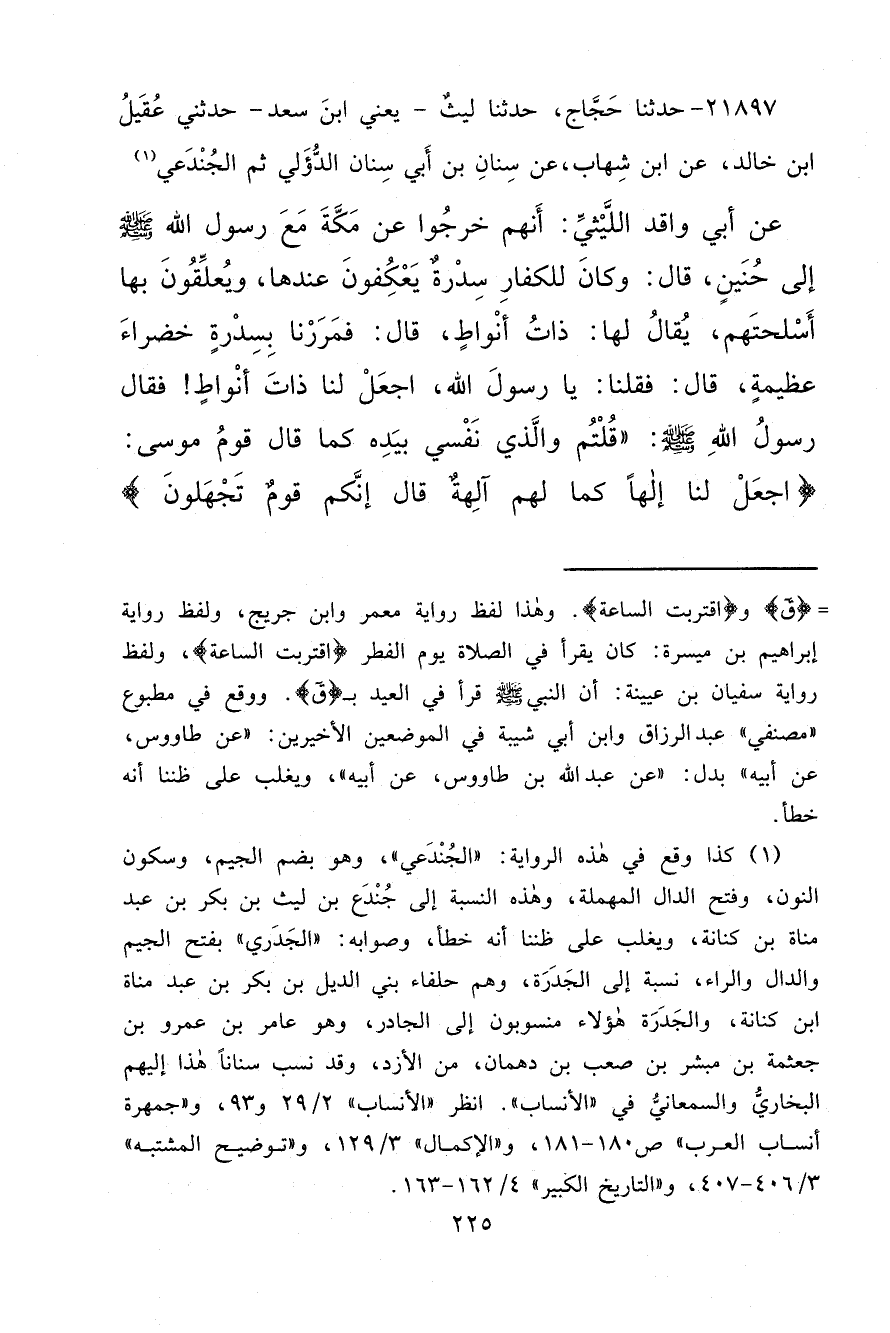 ٢١٨٩٧- حدثنا حَجَّاج، حدثنا ليثٌ - يعني ابنَ سعد- حدثني عُقَيلُ
ابن خالد، عن ابن شِهاب،عن سِنانِ بن أَبي سِنان الدُّؤَلي ثم الجُنْدَعي(١)
عن أَبي واقد اللَّيْثيِّ: أَنهم خرجُوا عن مَكَّةَ مَعَ رسول الله ﷺ
إلى حُنَينٍ، قال: وكانَ للكفارِ سِدْرةٌ يَعْكِفونَ عندها، ويُعلِّقُونَ بها
أَسْلحتَهم، يُقالُ لها: ذاتُ أنْواطٍ، قال: فمَرَرْنا بِسِدْرةٍ خضراءَ
عظيمةٍ، قال: فقلنا: يا رسولَ الله، اجعَلْ لنا ذاتَ أنْواطٍ! فقال
رسولُ اللهِ ﷺ: «قُلْتُم والَّذي نَفْسي بيَدِه كما قال قومُ موسى:
﴿اجعَلْ لنا إلٰهاً كما لهم آلِهةٌ قال إنَّكم قومٌ تَجْهَلونَ﴾
= ﴿قۤ﴾ و﴿اقتربت الساعة﴾. وهٰذا لفظ رواية معمر وابن جريج، ولفظ رواية
إبراهيم بن ميسرة: كان يقرأ في الصلاة يوم الفطر ﴿اقتربت الساعة﴾، ولفظ
رواية سفيان بن عيينة: أن النبي ﷺ قرأ في العيد بـ﴿قۤ﴾. ووقع في مطبوع
«مصنفي» عبدالرزاق وابن أبي شيبة في الموضعين الأخيرين: «عن طاووس،
عن أبيه» بدل: «عن عبدالله بن طاووس، عن أبيه»، ويغلب على ظننا أنه
خطأ.
(١) كذا وقع في هٰذه الرواية: «الجُنْدَعي»، وهو بضم الجيم، وسكون
النون، وفتح الدال المهملة، وهٰذه النسبة إلى جُنْدَع بن ليث بن بكر بن عبد
مناة بن كنانة، ويغلب على ظننا أنه خطأ، وصوابه: «الجَدَري» بفتح الجيم
والدال والراء، نسبة إلى الجَدَرَة، وهم حلفاء بني الديل بن بكر بن عبد مناة
ابن كنانة، والجَدَرَة هٰؤلاء منسوبون إلى الجادر، وهو عامر بن عمرو بن
جعثمة بن مبشر بن صعب بن دهمان، من الأزد، وقد نسب سناناً هٰذا إليهم
البخاريُّ والسمعانيُّ في «الأنساب». انظر «الأنساب» ٢٩/٢ و٩٣، و«جمهرة
أنساب العرب» ص١٨٠-١٨١، و«الإكمال» ١٢٩/٣، و«توضيح المشتبه»
٤٠٦/٣-٤٠٧، و«التاريخ الكبير» ١٦٢/٤-١٦٣.
٢٢٥